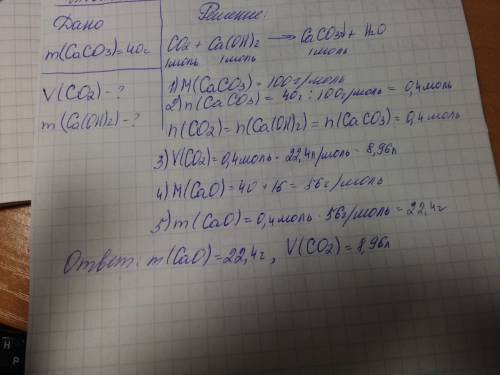 Дано
m(CaCO3)=40г
V(CO2) - ?
m(Ca(OH)2 - ?
Решение:
CO2 + Ca(OH)2 → CaCO3↓ + H2O
1моль 1моль 1моль
1) M(CaCO3) = 100г/моль
2) n(CaCO3) = 40г : 100г/моль = 0,4моль
n(CO2) = n(Ca(OH)2) = n(CaCO3) = 0,4моль
3) V(CO2) = 0,4моль · 22,4л/моль = 8,96л
4) M(CaO) = 40 + 16 = 56г/моль
5) m(CaO) = 0,4моль · 56г/моль = 22,4г
Ответ: m(CaO) = 22,4г, V(CO2) = 8,96л